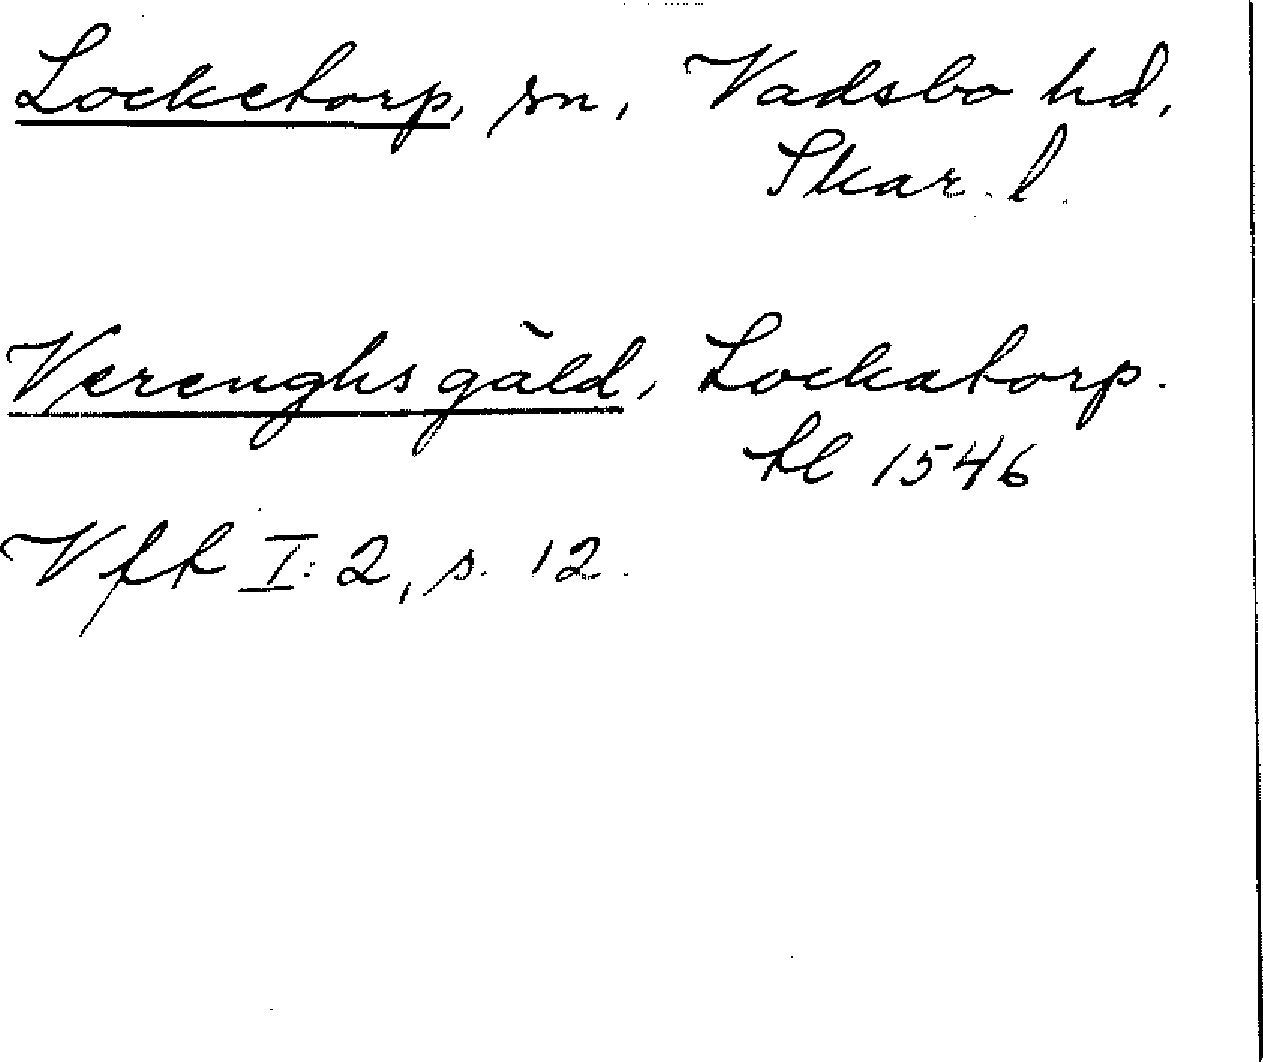 Locketorp, sn, Vadsbo hd,
Skar. l.
Verenghs gäld, Lockatorp.
tl 1546
Vft I:2, s. 12.